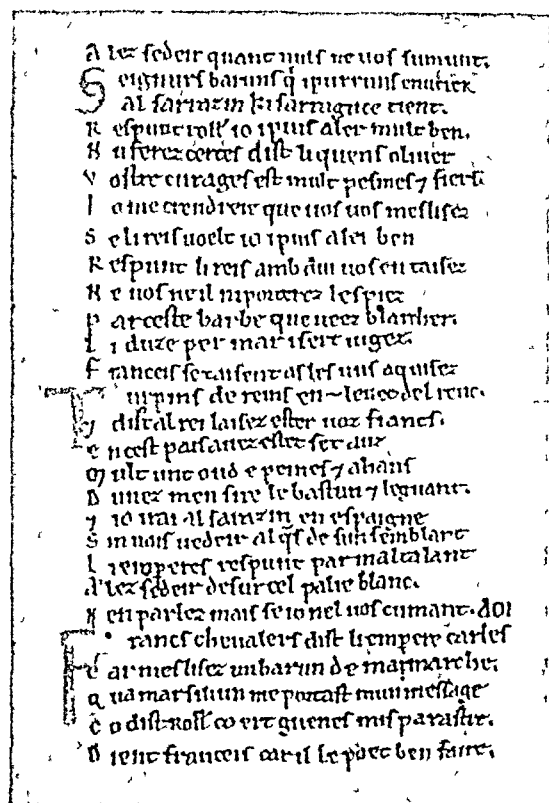 A lez sedeir quant nuls ne vos sumunt.
S eignurs baruns q̄ i purruns enveier
al sarrazin ki sarraguce tient.
R espunt roll̄ io i puis aler mult ben.
N u ferez certes dist li quens oliver
V ostre curages est mult pesmes ⁊ fiers.
I o me crendreie que vos vos meslisez
S e li reis voelt io i puis aler ben
R espunt li reis ambdui vos en taisez
N e vos ne il n i porterez les piez
P ar ceste barbe que veez blancher.
L i duze per mar i sert iugez.
F ranceis se taisent as les vus aquisez
T urpins de reins en levet del renc.
⁊ dist al rei laisez ester voz francs.
E n cest pais avez estet set anz
M ult unt oud e peines ⁊ ahans
D unez men sire le bastun ⁊ le guant.
⁊ io irai al sarazin en espaigne
S in vois vedeir alq̄s de sun semblant
L i emperes respunt par maltalant
A lez sedeir desur cel palie blanc.
N en parlez mais se io nel vos cumant. AOI
F rancs chevalers dist li emperere carles
C ar me slisez un barun de ma marche.
Q ua marsiliun me portast mun message
C o dist roll̄ co ert guenes mis parastre.
D ient franceis car il le poet ben faire.